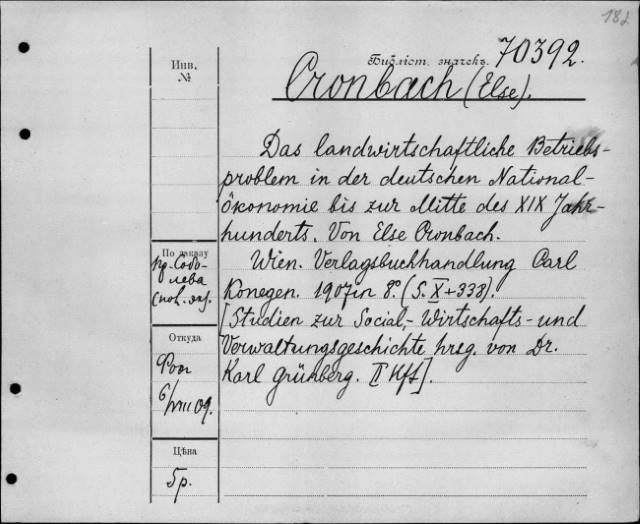 182
Библіот. значекъ. 70392.
Инв.
№
Cronbach (Else).
Das landwirtschaftliche Betriebs-
problem in der deutschen National-
ökonomie bis zur Mitte des XIX Jahr-
hunderts. Von Else Cronbach.
Wien. Verlagsbuchhandlung Carl
Konegen. 1907 in 8°. (S. X+338).
[Studien zur Social,- Wirtschafts- und
Verwaltungsgeschichte hrsg. von Dr.
Karl Grünberg. II Hft].
По заказу
пр. Собо-
лева
Откуда
6/VIII 09.
Цѣна
5р.